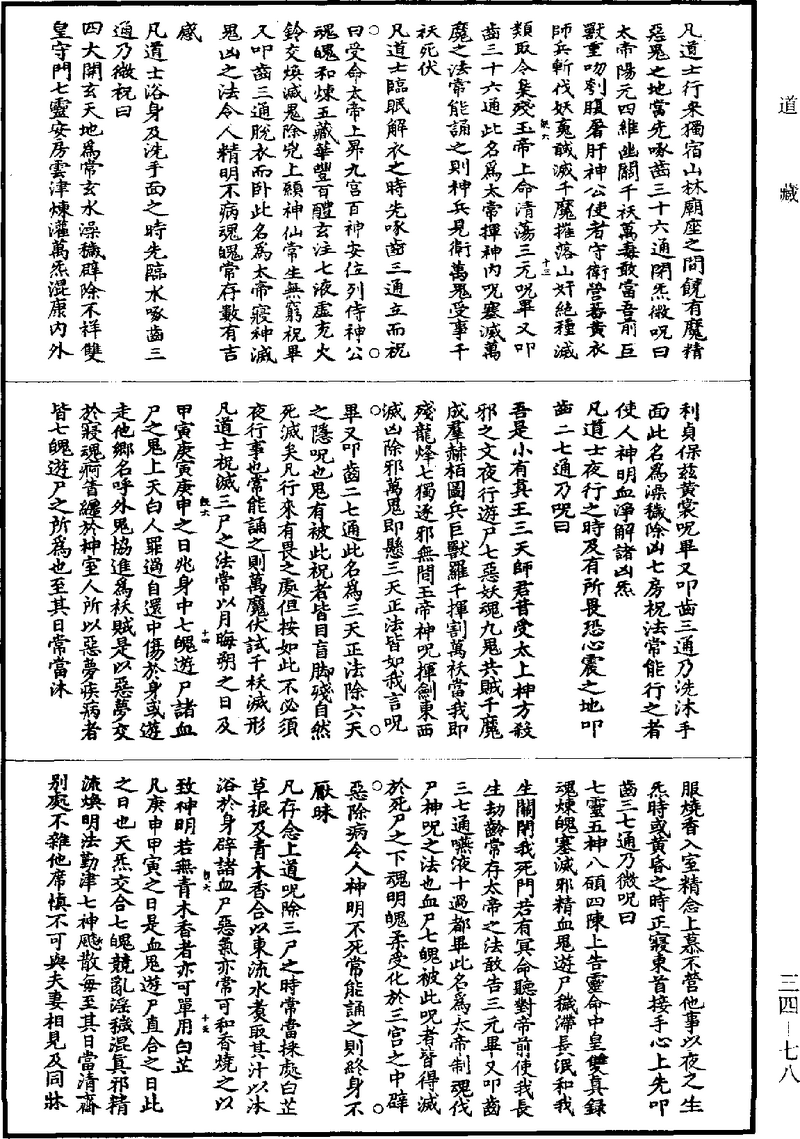 道藏
凡道士行来獨宿山林廟座之間饒有魔精
惡鬼之地當先啄齒三十六通閉炁微呪曰
太帝陽元四維幽關千袄萬毒敢當吾前巨
獸重吻刳腹屠肝神公使者守衛營蕃黄衣
師兵斬伐妖䰟馘滅千魔摧落山奸絶種滅
類取令梟殘玉帝上命清蕩三元呪畢又叩
齒三十六通此名爲太常揮神内呪塞滅萬
魔之法常能誦之則神兵見衛萬鬼受事千
袄死伏
凡道士臨眠解衣之時先啄齒三通立而祝
曰受命太帝上昇九宫百神安位列侍神公
魂魄和煉五藏華豐百醴玄注七液虚充火
鈴交煥滅鬼除兇上願神仙常生無窮祝畢
又叩齒三通脱衣而卧此名爲太帝寢神滅
鬼凶之法令人精明不病魂魄常存數有吉
感
凡道士浴身及洗手面之時先臨水啄齒三
通乃微祝曰
四大開玄天地爲常玄水澡穢辟除不祥雙
皇守門七靈安房雲津煉灌萬炁混康内外
利貞保兹黄裳呪畢又叩齒三通乃洗沐手
面此名爲澡穢除凶七房祝法常能行之者
使人神明血淨解諸凶炁
凡道士夜行之時及有所畏恐心震之地叩
齒二七通乃呪曰
吾是小有真王三天師君昔受太上神方殺
邪之文夜行遊尸七惡妖魂九鬼共賊千魔
成羣赫栢圖兵巨獸羅千揮割萬袄當我即
殘龍烽七獨逐邪無間玉帝神呪揮劍東西
滅凶除邪萬鬼即懸三天正法皆如我言呪
畢又叩齒二七通此名爲三天正法除六天
之隱呪也鬼有被此祝者皆目盲脚殘自然
死滅矣凡行來有畏之處但按如此不必須
夜行事也常能誦之則萬魔伏試千袄滅形
凡道士祝滅三尸之法常以月晦朔之日及
甲寅庚寅庚申之日兆身中七魄遊尸諸血
尸之鬼上天白人罪過自還中傷於身或遊
走他鄉名呼外鬼協進爲袄賊是以惡夢交
於寢魂痾眚纏於神室人所以惡夢疾病者
皆七魄遊尸之所爲也至其日常當沐
服燒香入室精念上慕不營他事以夜之生
炁時或黄昏之時正寢東首接手心上先叩
齒三七通乃微呪曰
七靈五神八願四陳上告靈命中皇雙真録
魂煉魄塞滅邪精血鬼遊尸穢滯長泯和我
生關閉我死門若有冥命聽對帝前使我長
生劫齡常存太帝之法敢告三元畢又叩齒
三七通嚥液十過都畢此名爲太帝制魂伐
尸神呪之法也血尸七魄被此呪者皆得滅
於死尸之下魂明魄柔受化於三宫之中辟
惡除病令人神明不死常能誦之則終身不
厭昧
凡存念上道呪除三尸之時常當採處白芷
草根及青木香合以東流水煮取其汁以沐
浴於身辟諸血尸惡氣亦常可和香燒之以
致神明若無青木香者亦可單用白芷
凡庚申甲寅之日是血鬼遊尸直合之日此
之日也天炁交合七魄競亂淫穢混真邪精
流煥明法勤津七神飈散每至其日當清齋
别處不雜他席慎不可與夫妻相見及同牀
三四－七八